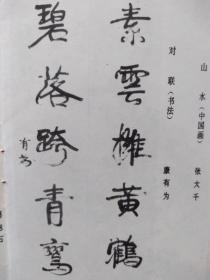 山 水（中国画）
张大千
对 联（书法）
康有为
素雲黃鶴
碧落跨青鸞
有為